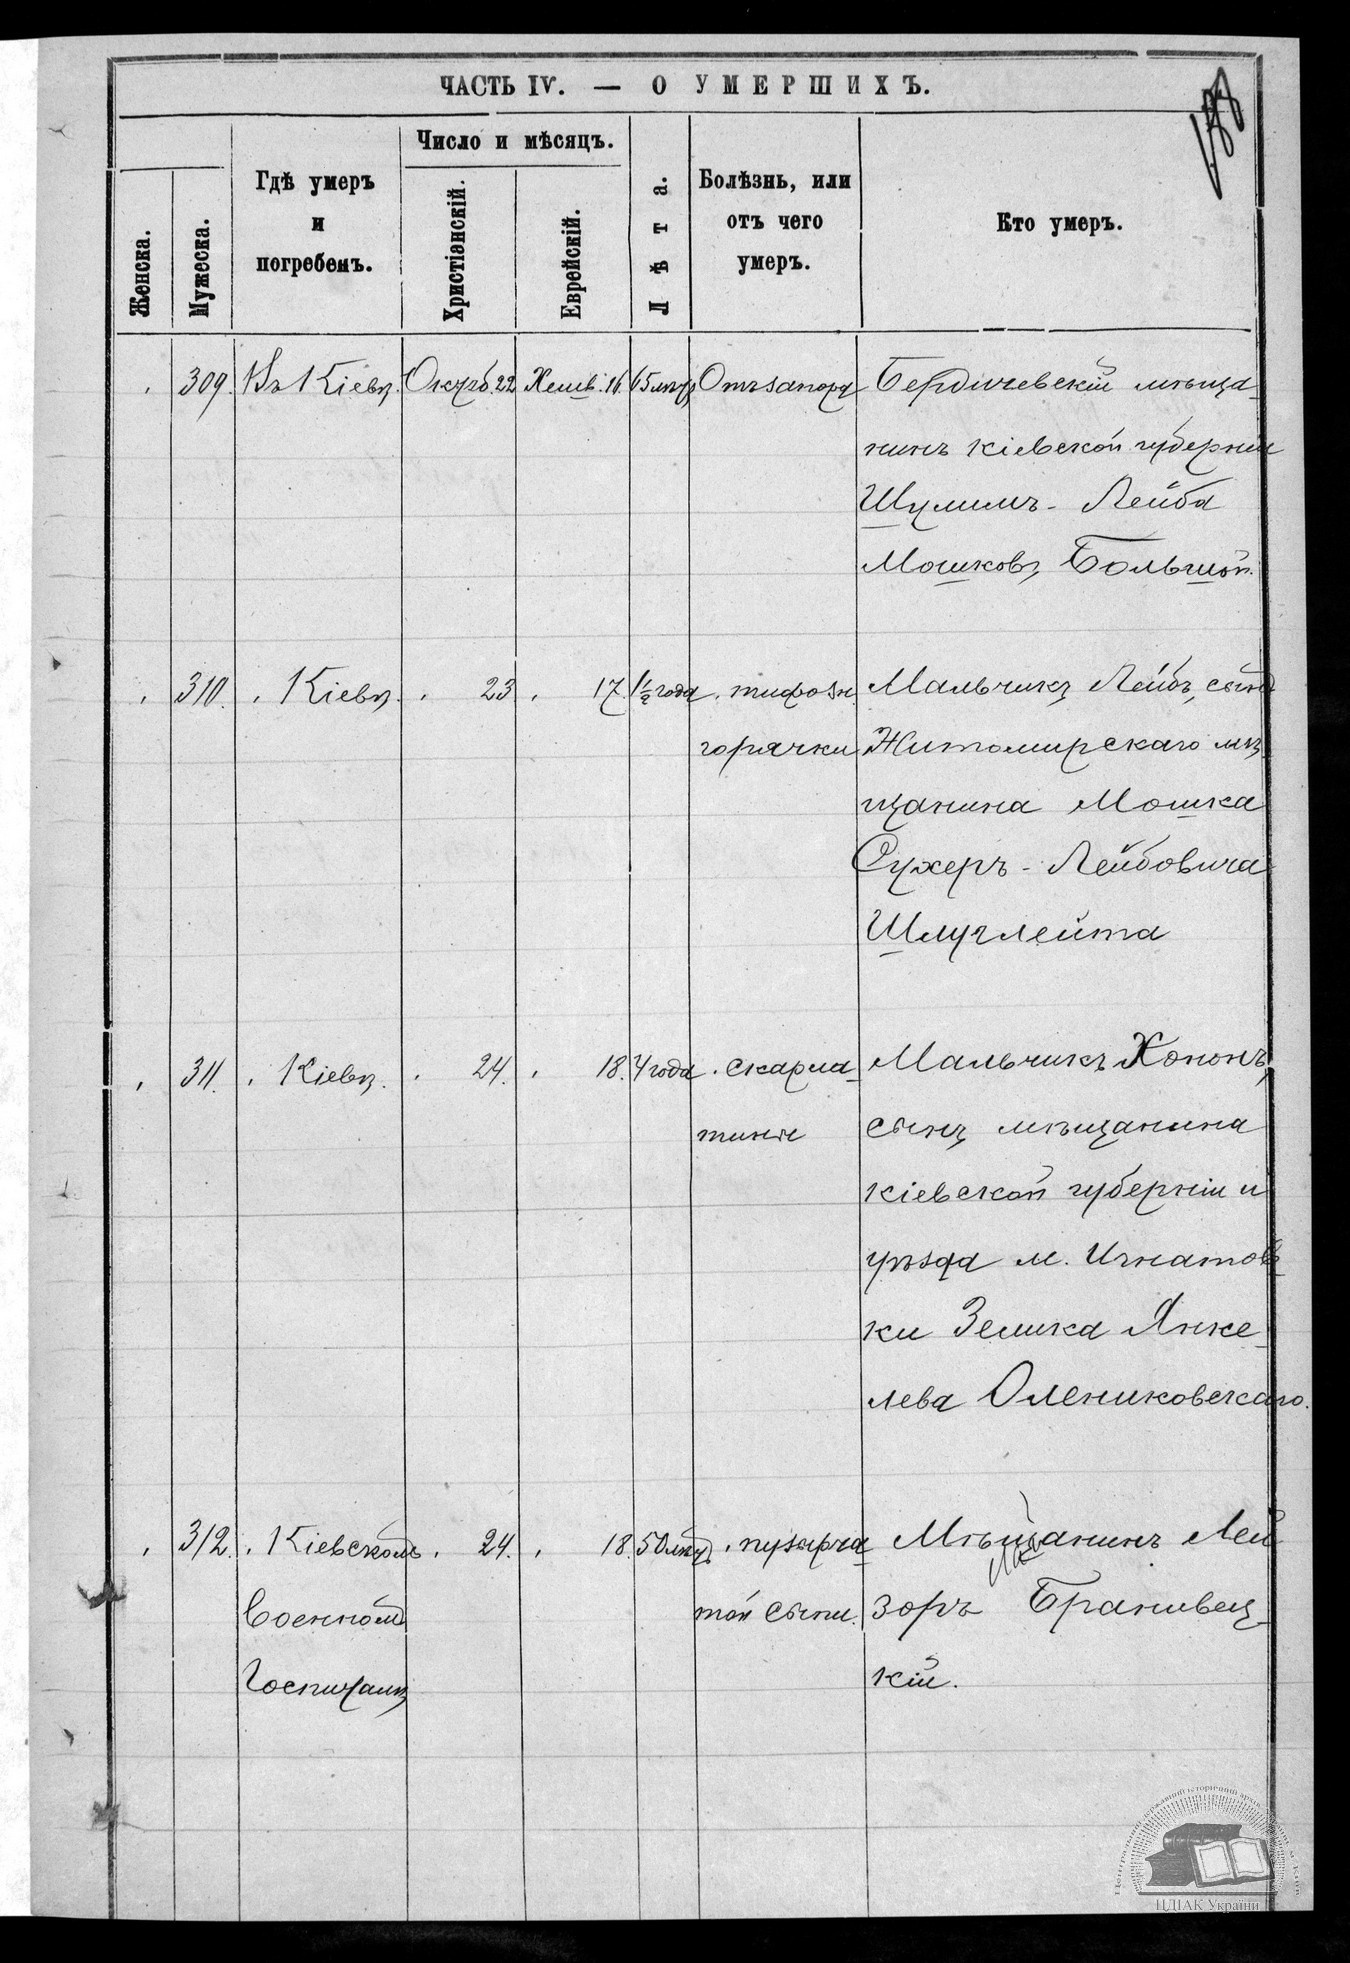 ЧАСТЬ IV. — О УМЕРШИХЪ.
188
Женска.
Мужеска.
Гдѣ умеръ
и
погребенъ.
Число и мѣсяцъ.
Христіанскій.
Еврейскій.
Лѣта.
Болѣзнь, или
отъ чего
умеръ.
Кто умеръ.
309. Въ Кіевѣ. Октяб. 22 Хешв. 16. 65 лѣтъ Отъ запора Бердичевскій мѣща-
нинъ Кіевской губерніи
Шулимъ - Лейба
Мошковъ Большой.
310. Кіевѣ. 23. 17. 1½ года тифозн. Мальчикъ Лейбъ, сынъ
горячки Житомирскаго мѣ-
щанина Мошка
Сухеръ - Лейбовича
Шлуглейта
311. Кіевѣ. 24. 18. 4 года скарла- Мальчикъ Хононъ,
тины сынъ мѣщанина
Кіевской губерніи и
уѣзда м. Игнатов-
ки Зелика Янке-
лева Олениковскаго.
312. Кіевскомъ 24. 18. 50 лѣтъ. пузырча- Мѣщанинъ Лей
Военномъ той сыпи. зоръ Бранивец-
Госпиталѣ кій.
ЦДІАК України